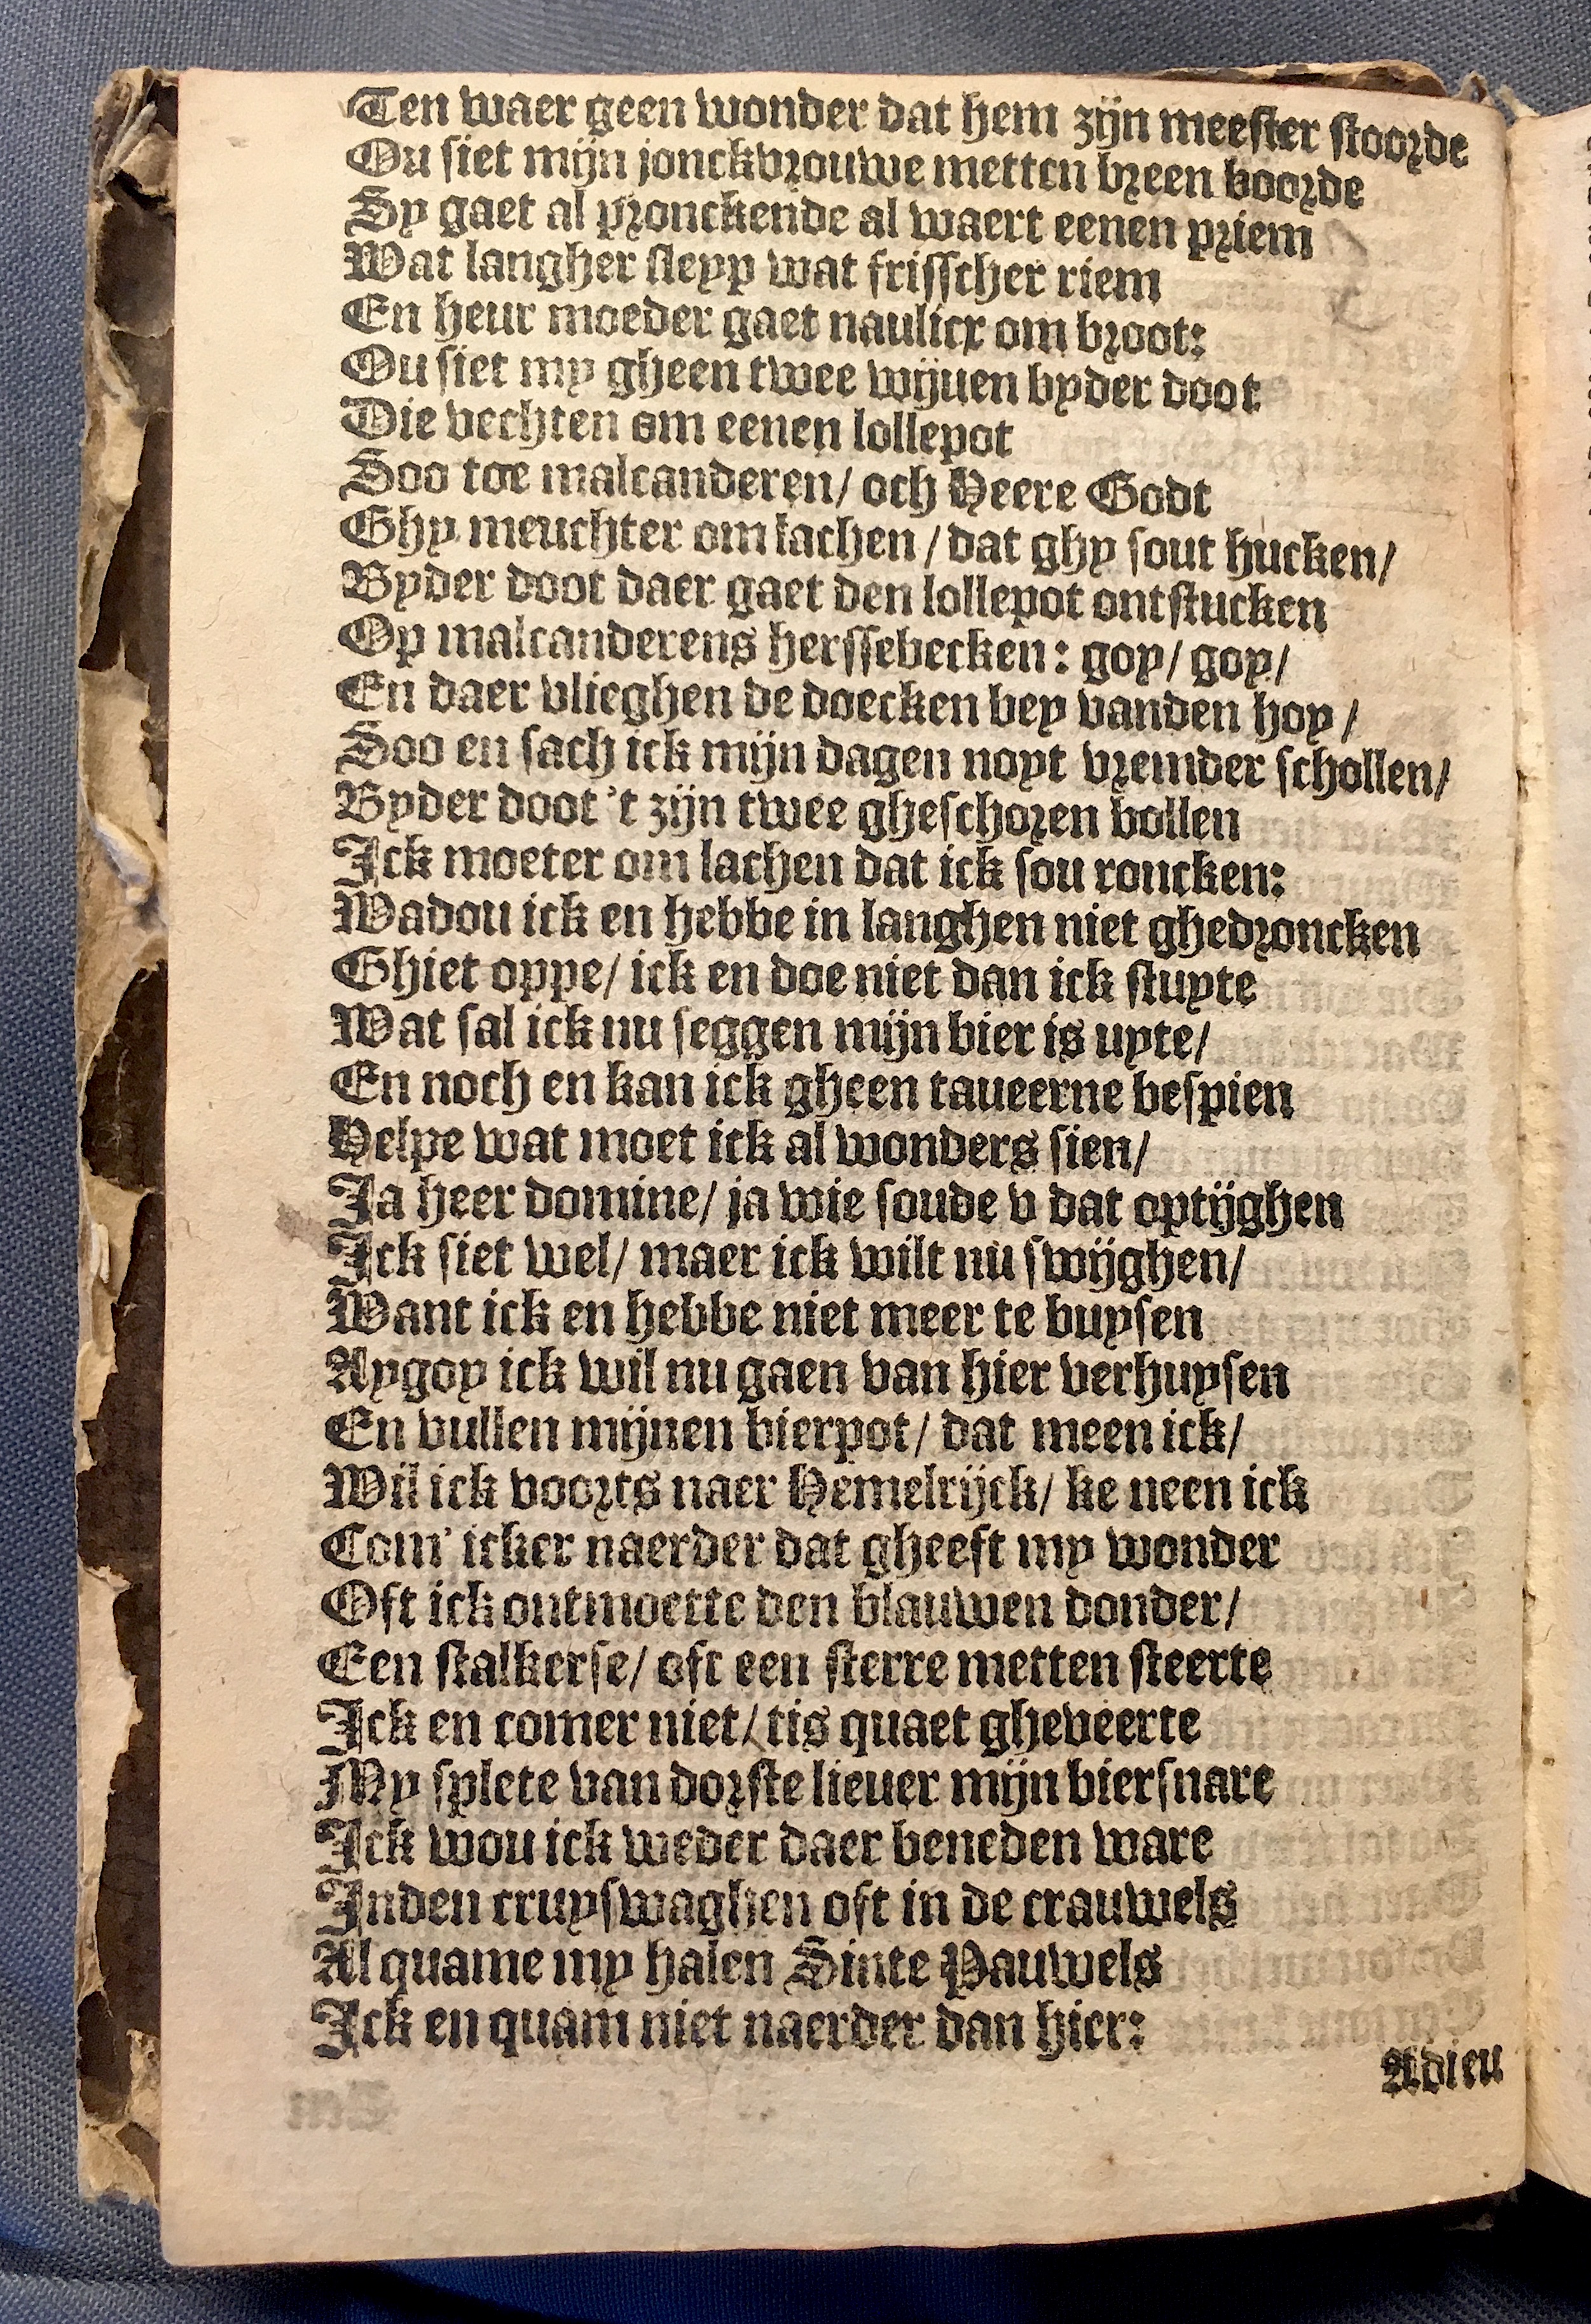 Ten waer geen wonder dat hem zijn meester stoorde
Ou siet mijn jonckvrouwe metten breen boorde
Sy gaet al pronckende al waert eenen priem
Wat langher sleyp wat frisscher riem
En heur moeder gaet naulicx om broot:
Ou siet my gheen twee wijuen byder doot
Die vechten om eenen lollepot
Soo toe malcanderen/ och Heere Godt
Ghy meuchter om lachen/ dat ghy sout hucken/
Byder doot daer gaet den lollepot ontstucken
Op malcanderens herssebecken: goy/ goy/
En daer vlieghen de doecken bey vanden hoy/
Soo en sach ick mijn dagen noyt vremder schollen/
Byder doot 't zijn twee gheschoren bollen
Ick moeter om lachen dat ick sou roncken:
Wadou ick en hebbe in langhen niet ghedroncken
Ghiet oppe/ ick en doe niet dan ick stuyte
Wat sal ick nu seggen mijn bier is uyte/
En noch en kan ick gheen taueerne bespien
Helpe wat moet ick al wonders sien/
Ja heer domine/ ja wie soude v dat optijghen
Ick siet wel/ maer ick wilt nu swijghen/
Want ick en hebbe niet meer te buysen
Aygoy ick wil nu gaen van hier verhuysen
En vullen mijnen bierpot/ dat meen ick/
Wil ick voorts naer Hemelrijck/ ke neen ick
Com' icker naerder dat gheeft my wonder
Oft ick ontmoette den blauwen donder/
Een stalkerse/ oft een sterre metten steerte
Ick en comer niet/ tis quaet gheveerte
My splete van dorste liever mijn biersnare
Ick wou ick weder daer beneden ware
Inden cruyswaghen oft in de crauwels
Al quame my halen Sinte Pauwels
Ick en quam niet naerder dan hier:
Adieu